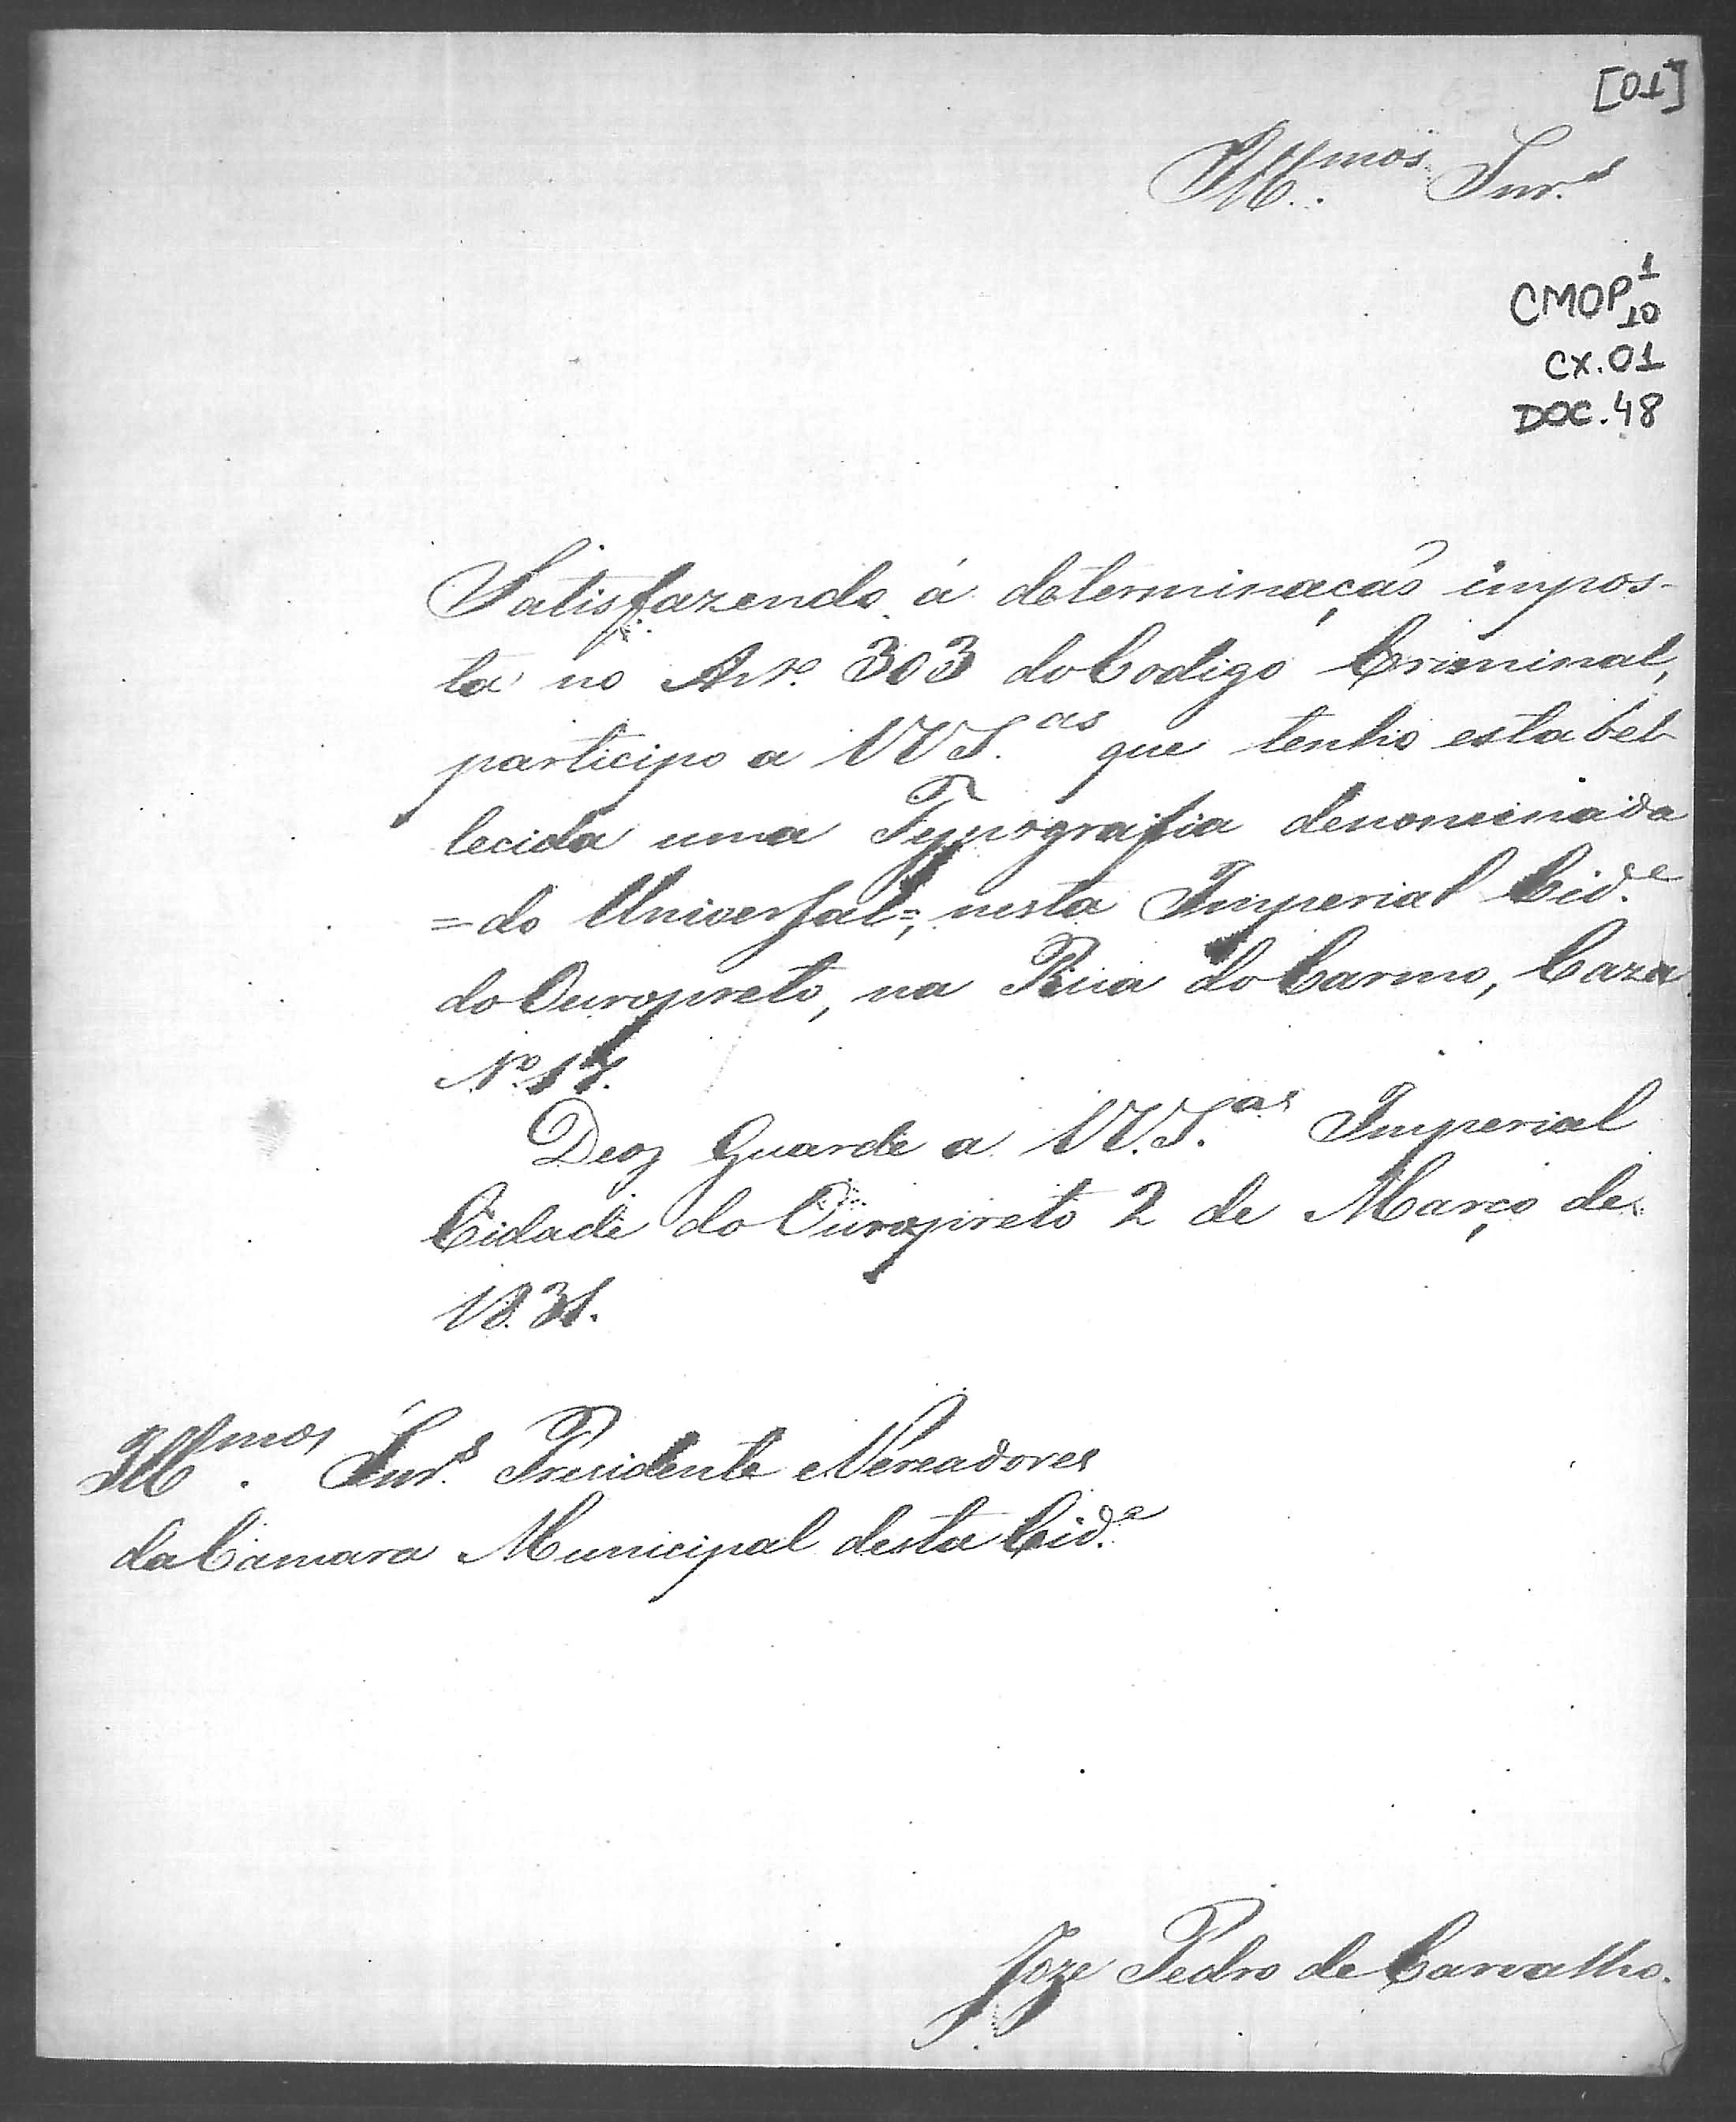 [01]
Ill.mos Snr.es
CMOP 1
10
CX. 01
DOC. 48
Satisfazendo á determinação impos-
ta no Art.o 303 do Codigo Criminal,
participo a VV S.as que tenho estabel
lecida uma Typografia denominada
= do Universal =, nesta Imperial Cid.e
do Ouropreto, na Rua do Carmo, Caza
N.o 17.
Deos Guarde a VV. S.as Imperial
Cidade do Ouropreto 2 de Março de
1831.
Ill.mos Snr.s Presidente e Vereadores
da Camara Municipal desta Cid.e
Joze Pedro de Carvalho.